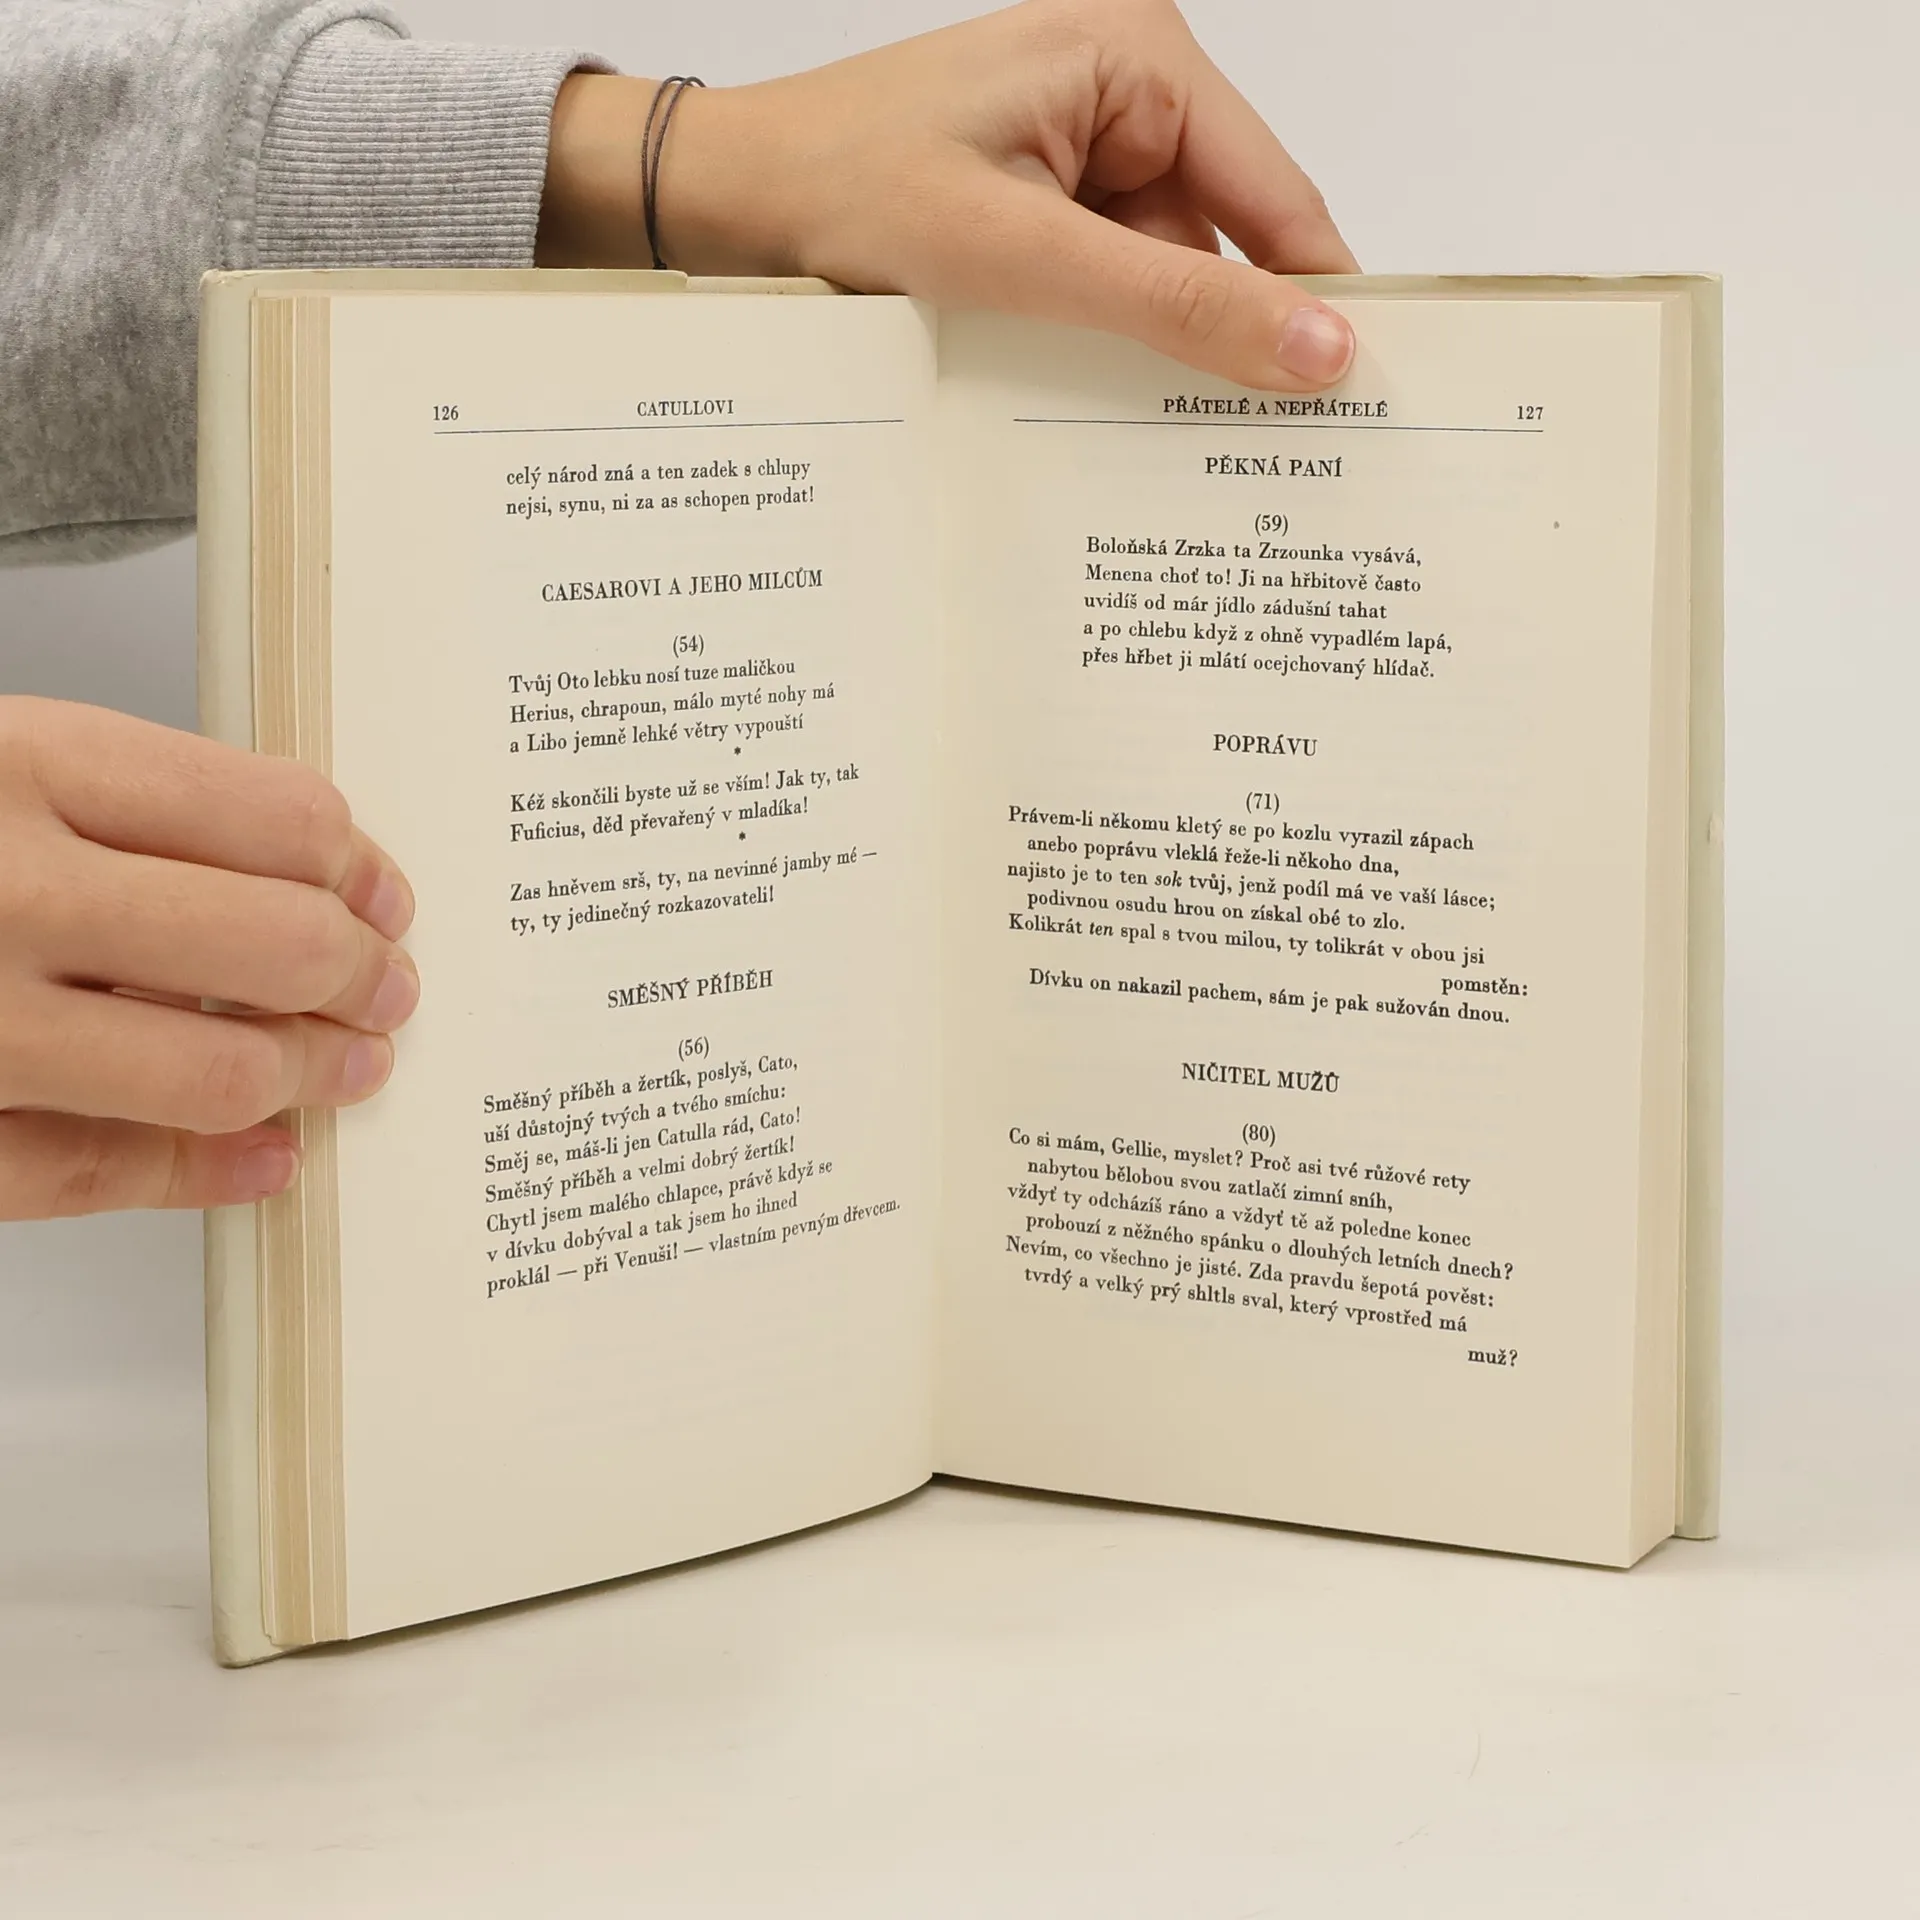 126 CATULLOVI
celý národ zná a ten zadek s chlupy
nejsi, synu, ni za as schopen prodat!
CAESAROVI A JEHO MILCŮM
(54)
Tvůj Oto lebku nosí tuze maličkou
Herius, chrapoun, málo myté nohy má
a Libo jemně lehké větry vypouští
*
Kéž skončili byste už se vším! Jak ty, tak
Fuficius, děd převařený v mladíka!
*
Zas hněvem srš, ty, na nevinné jamby mé —
ty, ty jedinečný rozkazovateli!
SMĚŠNÝ PŘÍBĚH
(56)
Směšný příběh a žertík, poslyš, Cato,
uší důstojný tvých a tvého smíchu:
Směj se, máš-li jen Catulla rád, Cato!
Směšný příběh a velmi dobrý žertík!
Chytl jsem malého chlapce, právě když se
v dívku dobýval a tak jsem ho ihned
proklál — při Venuši! — vlastním pevným dřevcem.
PŘÁTELÉ A NEPŘÁTELÉ 127
PĚKNÁ PANÍ
(59)
Boloňská Zrzka ta Zrzounka vysává,
Menena choť to! Ji na hřbitově často
uvidíš od már jídlo zádušní tahat
a po chlebu když z ohně vypadlém lapá,
přes hřbet ji mlátí ocejchovaný hlídač.
POPRÁVU
(71)
Právem-li někomu kletý se po kozlu vyrazil zápach
anebo poprávu vleklá řeže-li někoho dna,
najisto je to ten sok tvůj, jenž podíl má ve vaší lásce;
podivnou osudu hrou on získal obé to zlo.
Kolikrát ten spal s tvou milou, ty tolikrát v obou jsi
pomstěn:
Dívku on nakazil pachem, sám je pak sužován dnou.
NIČITEL MUŽŮ
(80)
Co si mám, Gellie, myslet? Proč asi tvé růžové rety
nabytou bělobou svou zatlačí zimní sníh,
vždyť ty odcházíš ráno a vždyť tě až poledne konec
probouzí z něžného spánku o dlouhých letních dnech?
Nevím, co všechno je jisté. Zda pravdu šepotá pověst:
tvrdý a velký prý shltls sval, který vprostřed má
muž?